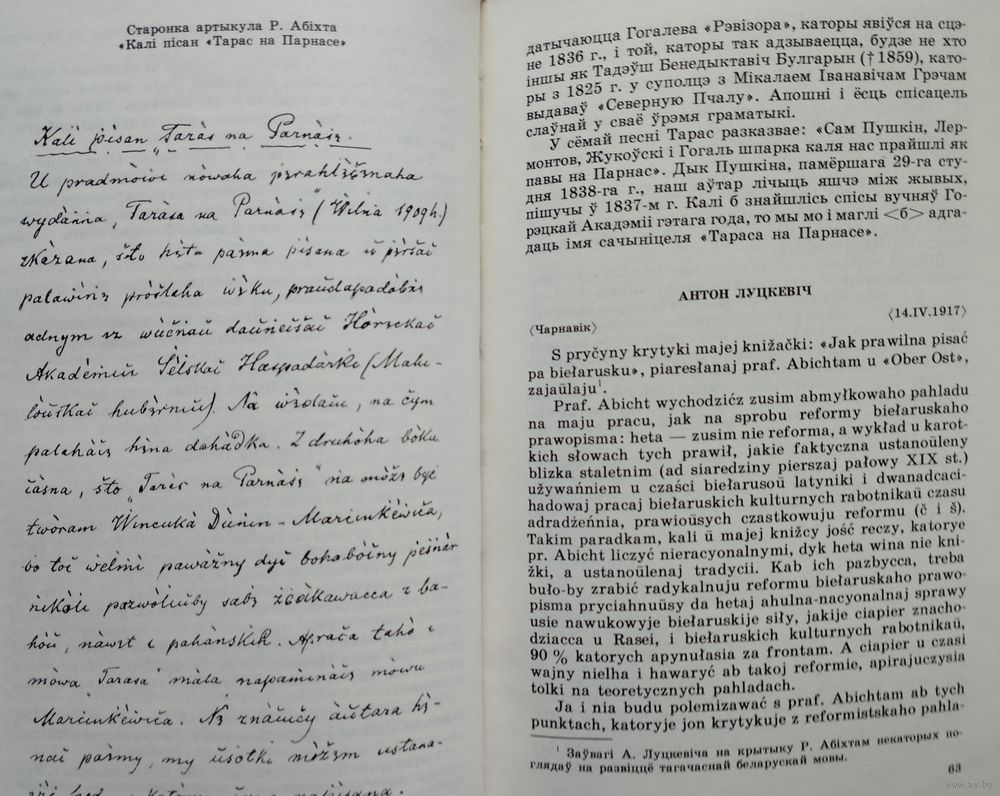 Старонка артыкула Р. Абіхта
«Калі пісан «Тарас на Парнасе»
Kali pisan „Taràs na Parnàsiz.
U pradmowi nowaha
wydànnia „Taràsa na Parnàsiz" (Wilna 1909h.)
skàzana, što hèta pisana ŭ
palawiniz pròšłaha wièku, praŭdapadòbniz
adnym iz
Akadèmii Sèlskai Haspadàrki (Mahi-
na čym
hèna dahàdka. Z druhòha bòku
što „Taràs na Parnàsiz" nia mòža być
twòram Wincuka Dùnin-Marcinkèwiča,
bo toi wèlmi pawàžny bohabòiny
nikòli z ba-
hoŭ, nàwat i pahànskich. Apràča tahò i
mòwa „Taràsa" màła napaminàiz mòwu
Marcinkèwiča. àŭtara
my ŭsiotki mòžem ustana-
датычаюцца Гогалева «Рэвізора», каторы явіўся на сцэ-
не 1836 г., і той, каторы так адзываецца, будзе не хто
іншы як Тадэўш Бенедыктавіч Булгарын (†1859), като-
ры з 1825 г. у суполцэ з Мікалаем Іванавічам Грэчам
выдаваў «Северную Пчалу». Апошні і ёсць спісацель
слаўнай у сваё ўрэмя граматыкі.
У сёмай песні Тарас разказвае: «Сам Пушкін, Лер-
монтов, Жукоўскі і Гогаль шпарка каля нас прайшлі як
павы на Парнас». Дык Пушкіна, памёршага 29-га сту-
дня 1838-га г., наш аўтар лічыць яшчэ між жывых,
пішучы ў 1837-м г. Калі б знайшлісь спісы вучняў Го-
рэцкай Акадэміі гэтага года, то мы мо і маглі <б> адга-
даць імя сачыніцеля «Тараса на Парнасе».
АНТОН ЛУЦКЕВІЧ
⟨14.IV.1917⟩
⟨Чарнавік⟩
S pryčyny krytyki majej knižački: «Jak prawilna pisać
pa biełarusku», piaresłanaj praf. Abichtam u «Ober Ost»,
zajaŭlaju¹.
Praf. Abicht wychodzićz zusim abmyłkowaho pahladu
na maju pracu, jak na sprobu reformy biełaruskaho
prawopisma: heta — zusim nie reforma, a wykład u karot-
kich słowach tych prawił, jakie faktyczna ustanoŭleny
blizka staletnim (ad siaredziny pierszaj pałowy XIX st.)
używańniem u czaści biełarusoŭ łatyniki i dwanadcaci-
hadowaj pracaj biełaruskich kulturnych rabotnikaŭ czasu
adradżeńnia, prawioŭsych czastkowuju reformu (č i š).
Takim paradkam, kali ŭ majej kniżcy jość reczy, katorye
pr. Abicht liczyć nieracyonalnymi, dyk heta wina nie kni-
żki, a ustanoŭlenaj tradycii. Kab ich pazbycca, treba
buło-by zrabić radykalnuju reformu biełaruskaho prawo-
pisma pryciahnuŭsy da hetaj ahulna-nacyonalnaj sprawy
usie nawukowyje biełaruskije siły, jakije ciapier znacho-
dziacca u Rasei, i biełaruskich kulturnych rabotnikaŭ,
90 % katorych apynułasia za frontam. A ciapier u czasi
wajny nielha i hawaryć ab takoj reformie, apirajuczysia
tolki na teoretycznych pahladach.
Ja i nia budu polemizawać s praf. Abichtam ab tych
punktach, katoryje jon krytykuje z reformistskaho pahla-
¹ Заўвагі А. Луцкевіча на крытыку Р. Абіхтам некаторых по-
глядаў на развіццё тагачаснай беларускай мовы.
63
www.ay.by